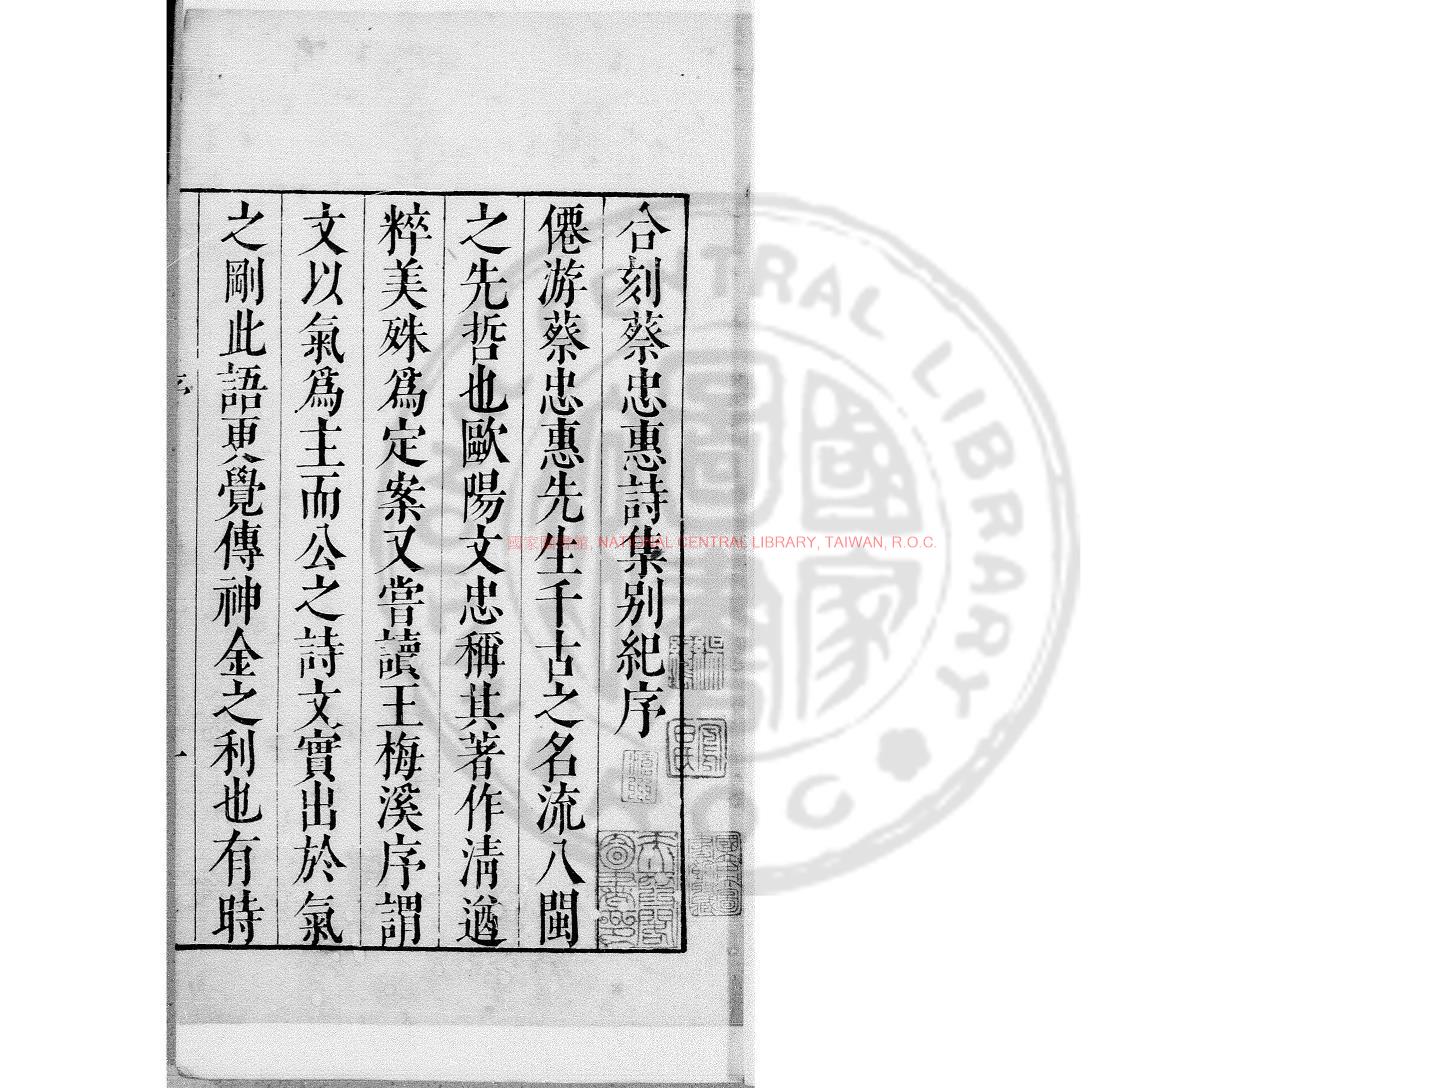 合刻蔡忠惠詩集別紀序
僊游蔡忠惠先生千古之名流八閩
之先哲也歐陽文忠稱其著作清遒
粹美殊爲定案又嘗讀王梅溪序謂
文以氣爲主而公之詩文實出於氣
之剛此語更覺傳神金之利也有時
序
一
國家圖書館, NATIONAL CENTRAL LIBRARY, TAIWAN, R.O.C.